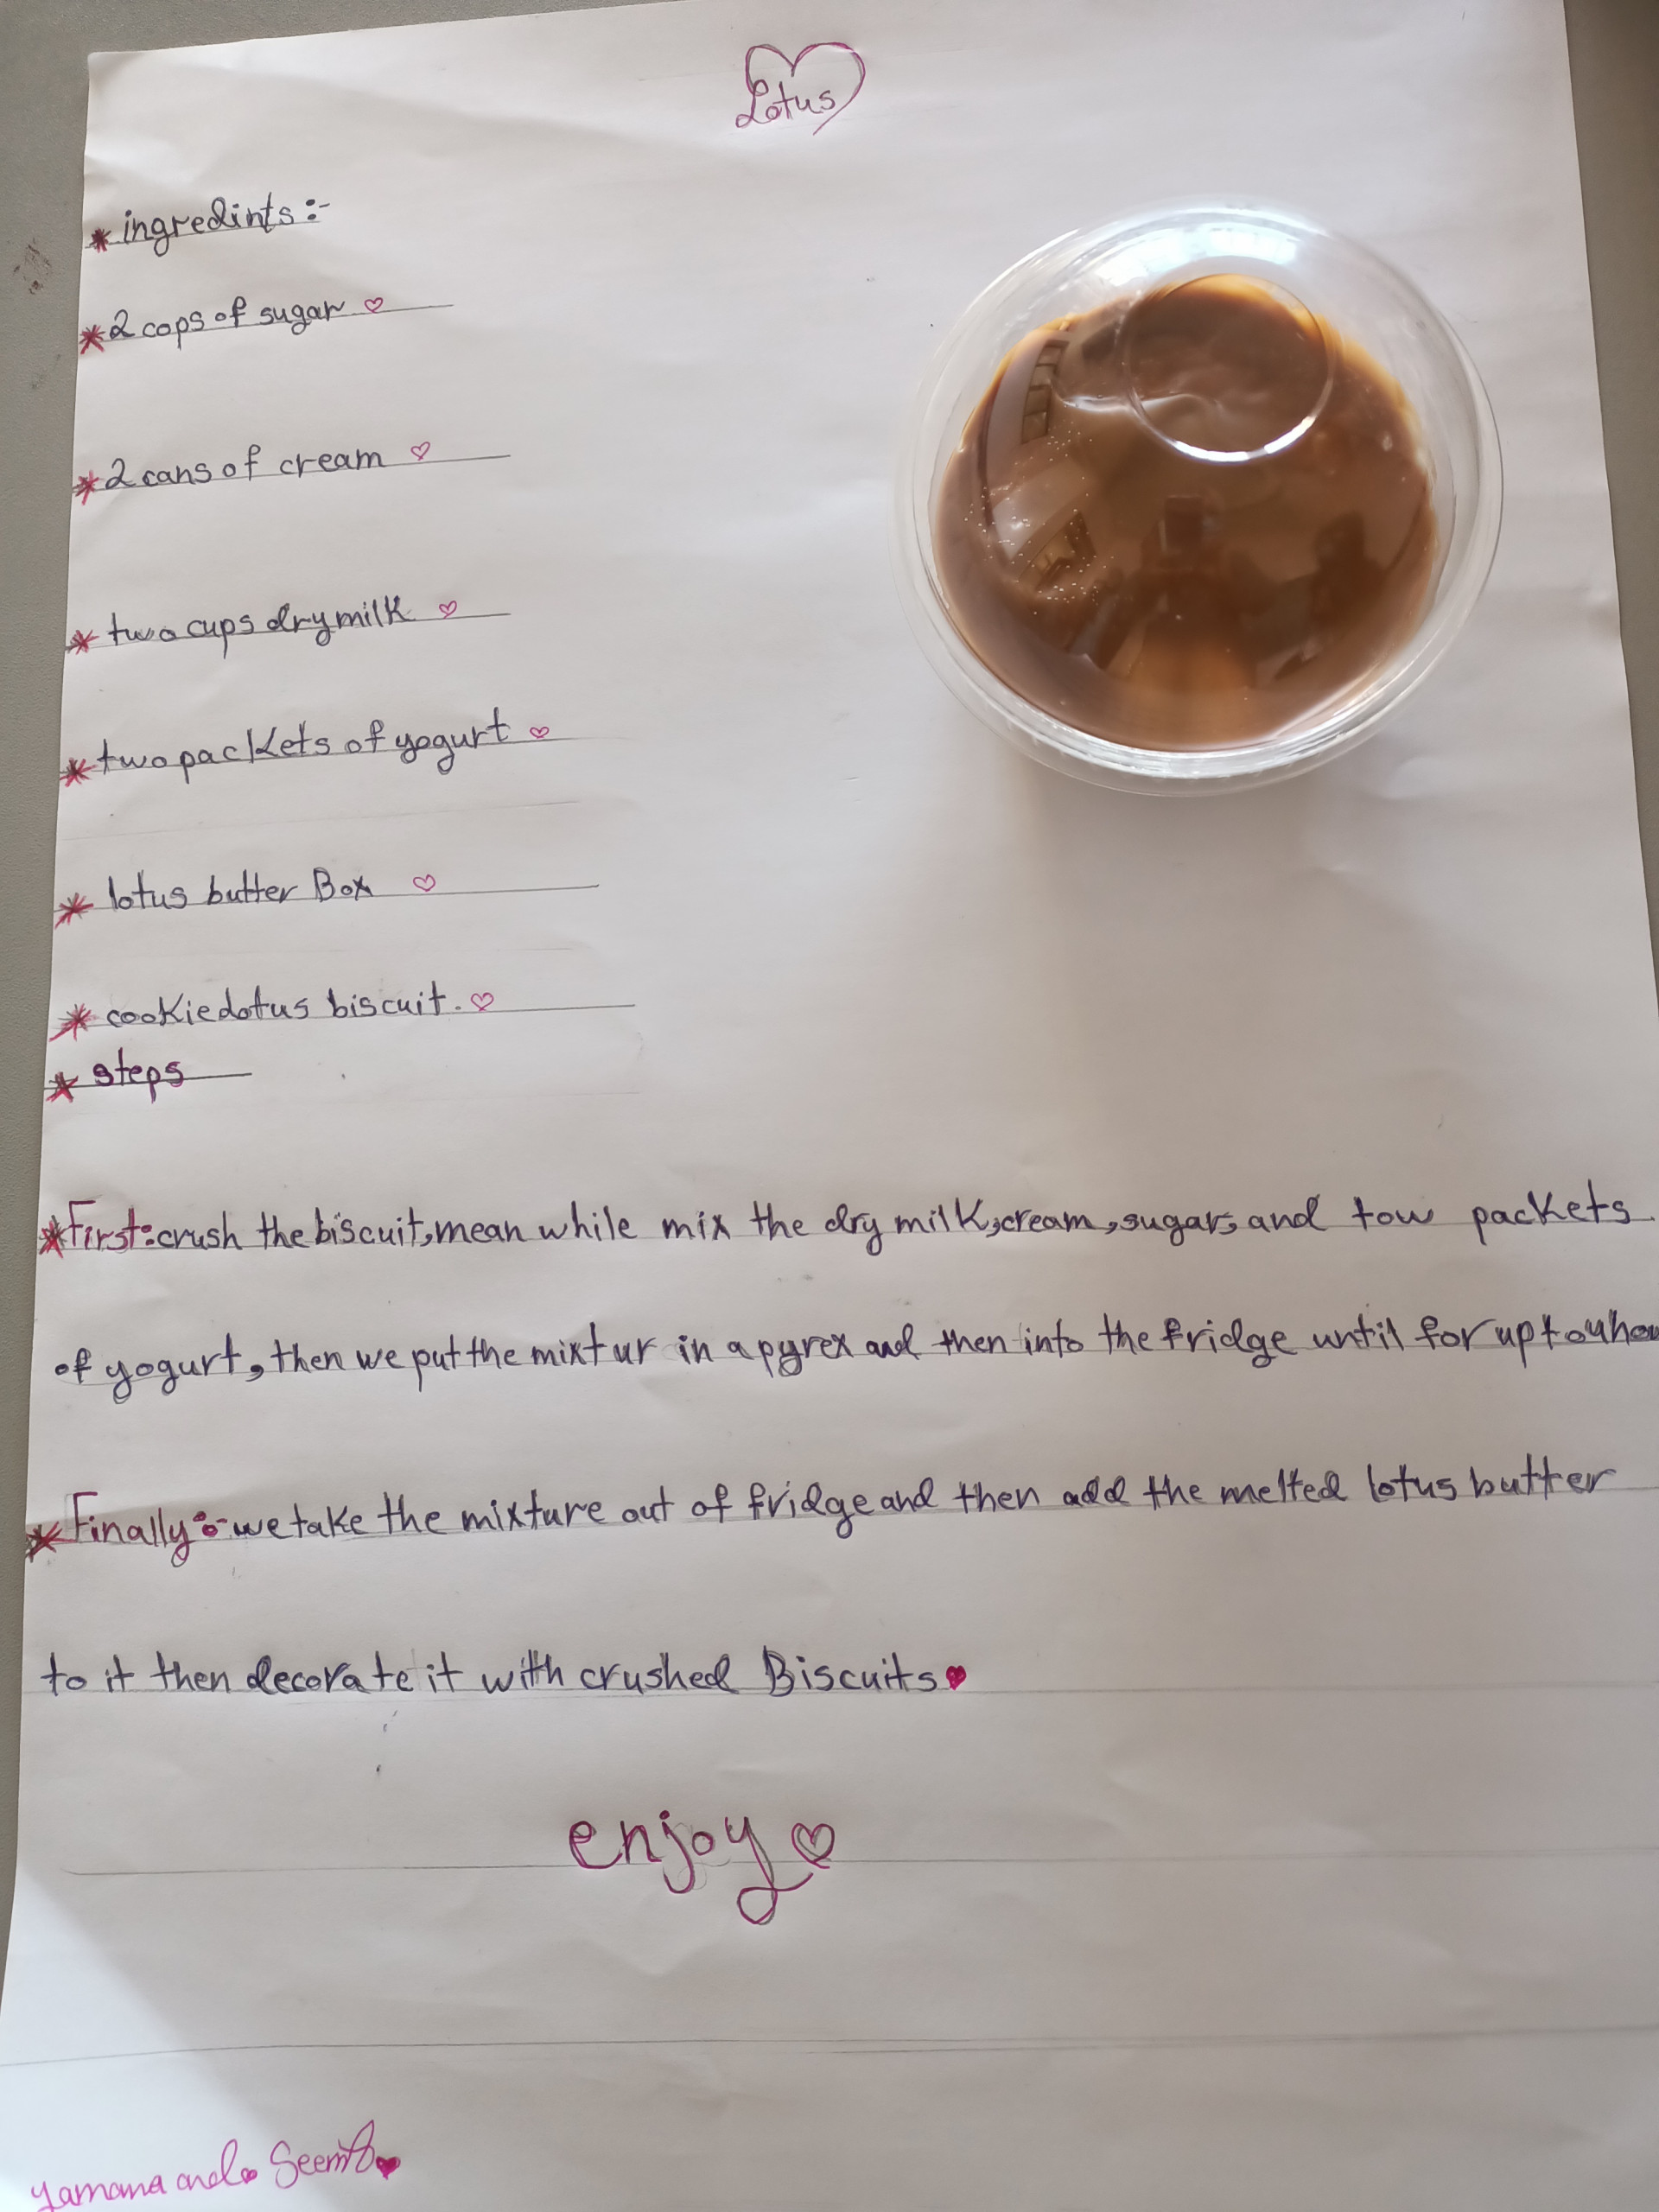 Lotus
ingredints:-
2 cops of sugar
2 cans of cream
two cups dry milk
two packets of yogurt
lotus butter Box
cookie lotus biscuit.
steps
First: crush the biscuit, mean while mix the dry milk, cream, sugar, and tow packets
of yogurt, then we put the mixtur in a pyrex and then into the fridge until for up to
Finally:- we take the mixture out of fridge and then add the melted lotus butter
to it then decorate it with crushed Biscuits
enjoy
yamama and